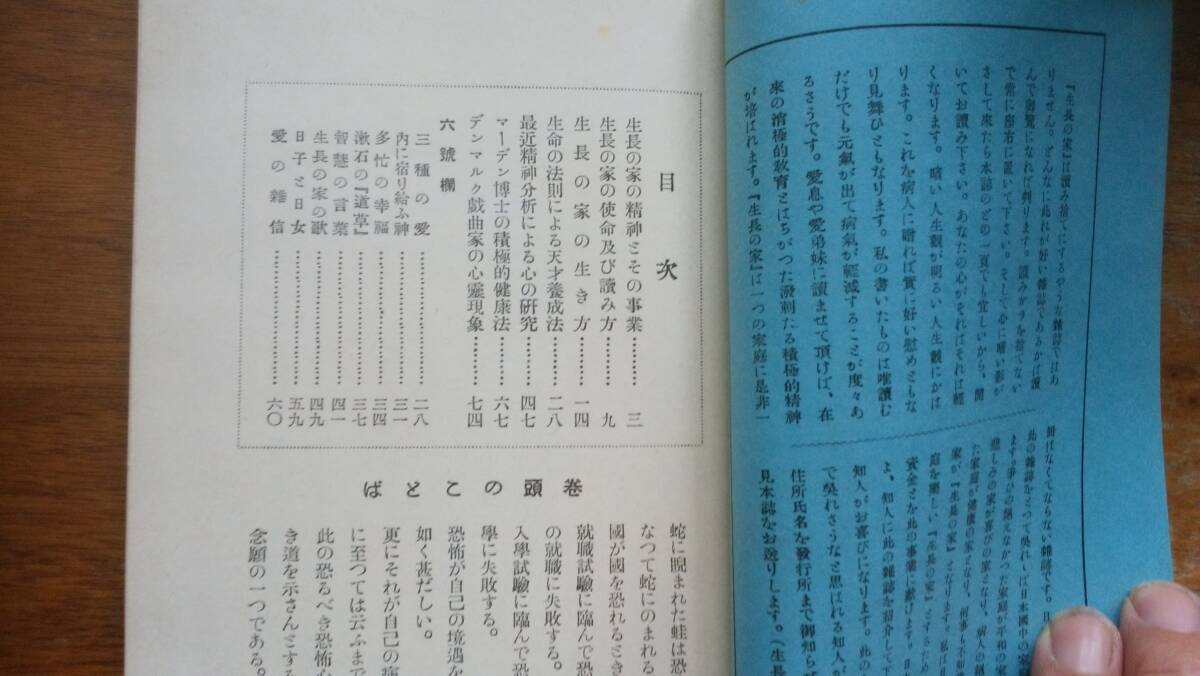 『生長の家』は讀み捨てにするやうな雜誌ではあ
りません。どんなに此れが好い雜誌であるかは讀
んで御覽になれば判ります。讀みがらを捨てない
で常に座右に置いて下さい。そして心に暗い影が
さして來たら本誌のどの一頁でも宜しいから、開
いてお讀み下さい。あなたの心がそれはそれは輕
くなります。暗い人生觀が明るい人生觀にかは
ります。これを病人に贈れば實に好い慰めともな
り見舞ひともなります。私の書いたものは唯讀む
だけでも元氣が出て病氣が輕減することが度々あ
るさうです。愛息や愛弟妹に讀ませて頂けば、在
來の消極的敎育とはちがつた潑剌たる積極的精神
が培はれます。『生長の家』は一つの家庭に是非一
册はなくてならない雜誌です。日
此の雜誌をとつて吳れゝば日本國中の家
ます。爭ひの絕えなかつた家庭が平和の家
悲しみの家が喜びの家となり、病人の絕
た家庭が健康の家となり、何事も不如
家が『生長の家』となります。私は
庭を樂しい『生長の家』とするため
資金とを此の事業に獻げます。日
よ、知人に此の雜誌を紹介して下
知人がお喜びになります。此の
で吳れさうなと思はれる知人が
住所氏名を發行所まで御知ら
見本誌をお送りします。(生長
目次
生長の家の精神とその事業………三
生長の家の使命及び讀み方………九
生長の家の生き方………一四
生命の法則による天才養成法………二八
最近精神分析による心の硏究………四七
マーデン博士の積極的健康法………六七
デンマルク戲曲家の心靈現象………七四
六號欄
三種の愛………二八
內に宿り給ふ神………三一
多忙の幸福………三四
漱石の『道草』………三七
智慧の言葉………四一
生長の家の歌………四九
日子と日女………五九
愛の雜信………六〇
卷頭のことば
蛇に睨まれた蛙は恐
なつて蛇にのまれる
國が國を恐れるとき
就職試驗に臨んで恐
の就職に失敗する。
入學試驗に臨んで恐
學に失敗する。
恐怖が自己の境遇を
如く甚だしい。
更にそれが自己の病
に至つては云ふまで
此の恐るべき恐怖心
き道を示さんとする
念願の一つである。